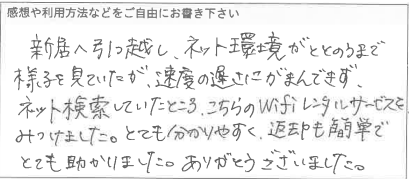 感想や利用方法などをご自由にお書き下さい
新居へ引っ越し、ネット環境がととのうまで
様子を見ていたが、速度の遅さにがまんできず、
ネット検索していたところ、こちらのWifiレンタルサービスを
みつけました。とても分かりやすく、返却も簡単で
とても助かりました。ありがとうございました。